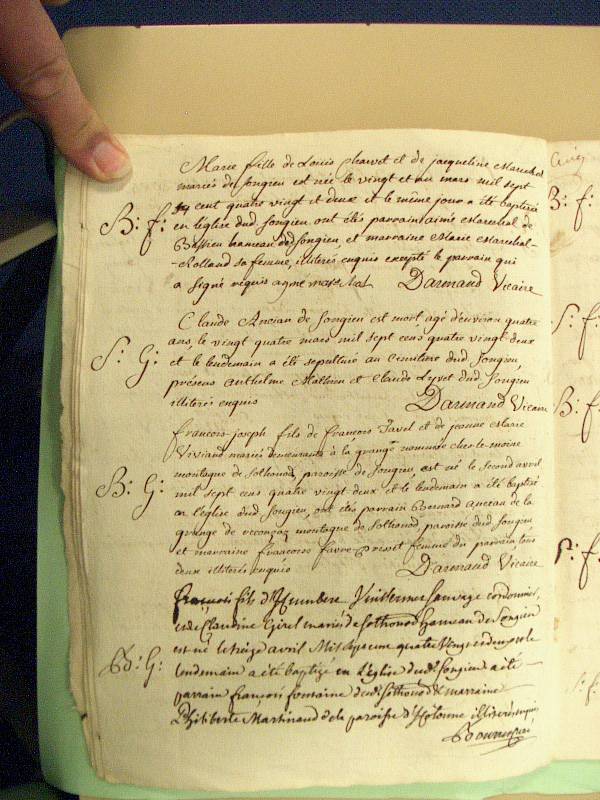 Marie fille de Louis Charvet et de jacqueline Marechal
mariés de Songieu est née le vingt et un mars mil sept
cent quatre vingt et deux et le même jour a été baptisée
B: f: en l'église dud Songieu ont étés parrain aimé Marechal de
Bassieu hameau dud Songieu, et marraine Marie Marechal-
-Rolland sa femme, illiterés enquis excepté le parrain qui
a signé requis ayme mareschal Darmand Vicaire
Claude Ancian de Songieu est mort, agé d'environ quatre
ans, le vingt quatre mars mil sept cens quatre vingt deux
S: G: et le lendemain a été sepulturé au Cimitiere dud Songieu,
présens Anthelme Mathieu et Claude Lyvet dud Songieu
illiterés enquis Darmand Vicaire
francois-joseph fils de françois Tavel et de jeanne Marie
Viviand mariés demeurants à la grange nommée chez-le-moine
montagne de Sothonod, paroisse de Songieu, est né le second avril
B: G: mil sept cens quatre vingt deux et le lendemain a été baptisé
en l'église dud Songieu, ont étés parrain Bernard Ancian de la
grange de montagne de Sothonod paroisse dud Songieu
et marraine francoise favre femme du parrain tous
deux illiterés enquis Darmand Vicaire
françois fils d'Humbert Vuillerme Sauvage cordonnier,
et de Claudine Girel mariés de Sothonod hameau de Songieu
est né le seize avril Mil sept cens quatre Vingt et deux et le
B: G: lendemain a été baptizé en L'église dudt Songieu a été
parrain françois fontaine dudt Sothonod & marraine
Philiberte Martinand de la paroisse d'Hotonne illiterés enquis